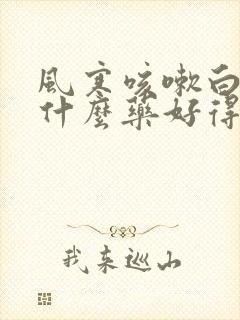 風寒咳嗽白
什麼藥好得
我來巡山